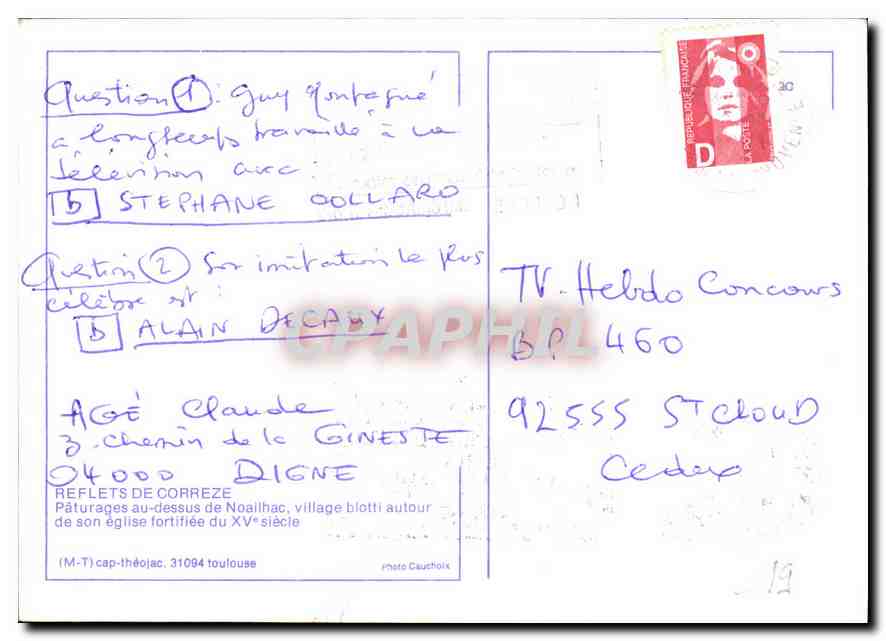 Question 1 : Guy Montagné
a longtemps travaillé à la
télévision avec :
b STEPHANE COLLARO
Question 2 Son imitation la plus
célèbre est :
b ALAIN DECAUX
AGÉ Claude
3 chemin de la GINESTE
04000 DIGNE
REFLETS DE CORREZE
Pâturages au-dessus de Noailhac, village blotti autour
de son église fortifiée du XVe siècle
(M-T) cap-théojac. 31094 toulouse
Photo Cauchoix
REPUBLIQUE FRANÇAISE
D
LA POSTE
TV. Hebdo Concours
BP 460
92555 ST CLOUD
Cedex
19
CPAPHIL